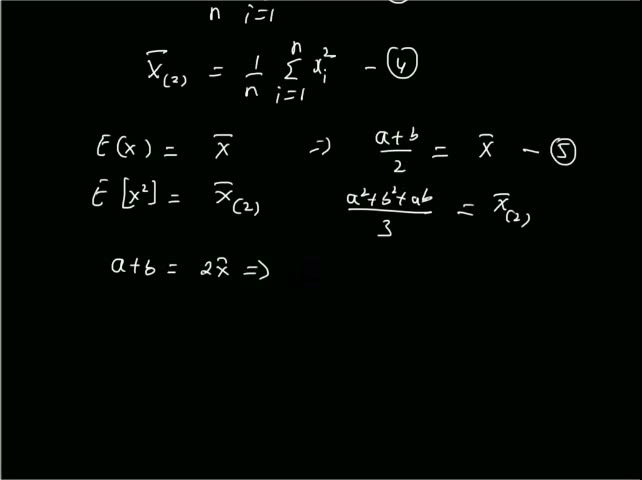 n i=1
x̄₍₂₎ = 1/n Σⁿᵢ₌₁ xᵢ² — ④
E(x) = x̄ ⇒ (a+b)/2 = x̄ — ⑤
E[x²] = x̄₍₂₎ (a²+b²+ab)/3 = x̄₍₂₎
a+b = 2x̄ ⇒